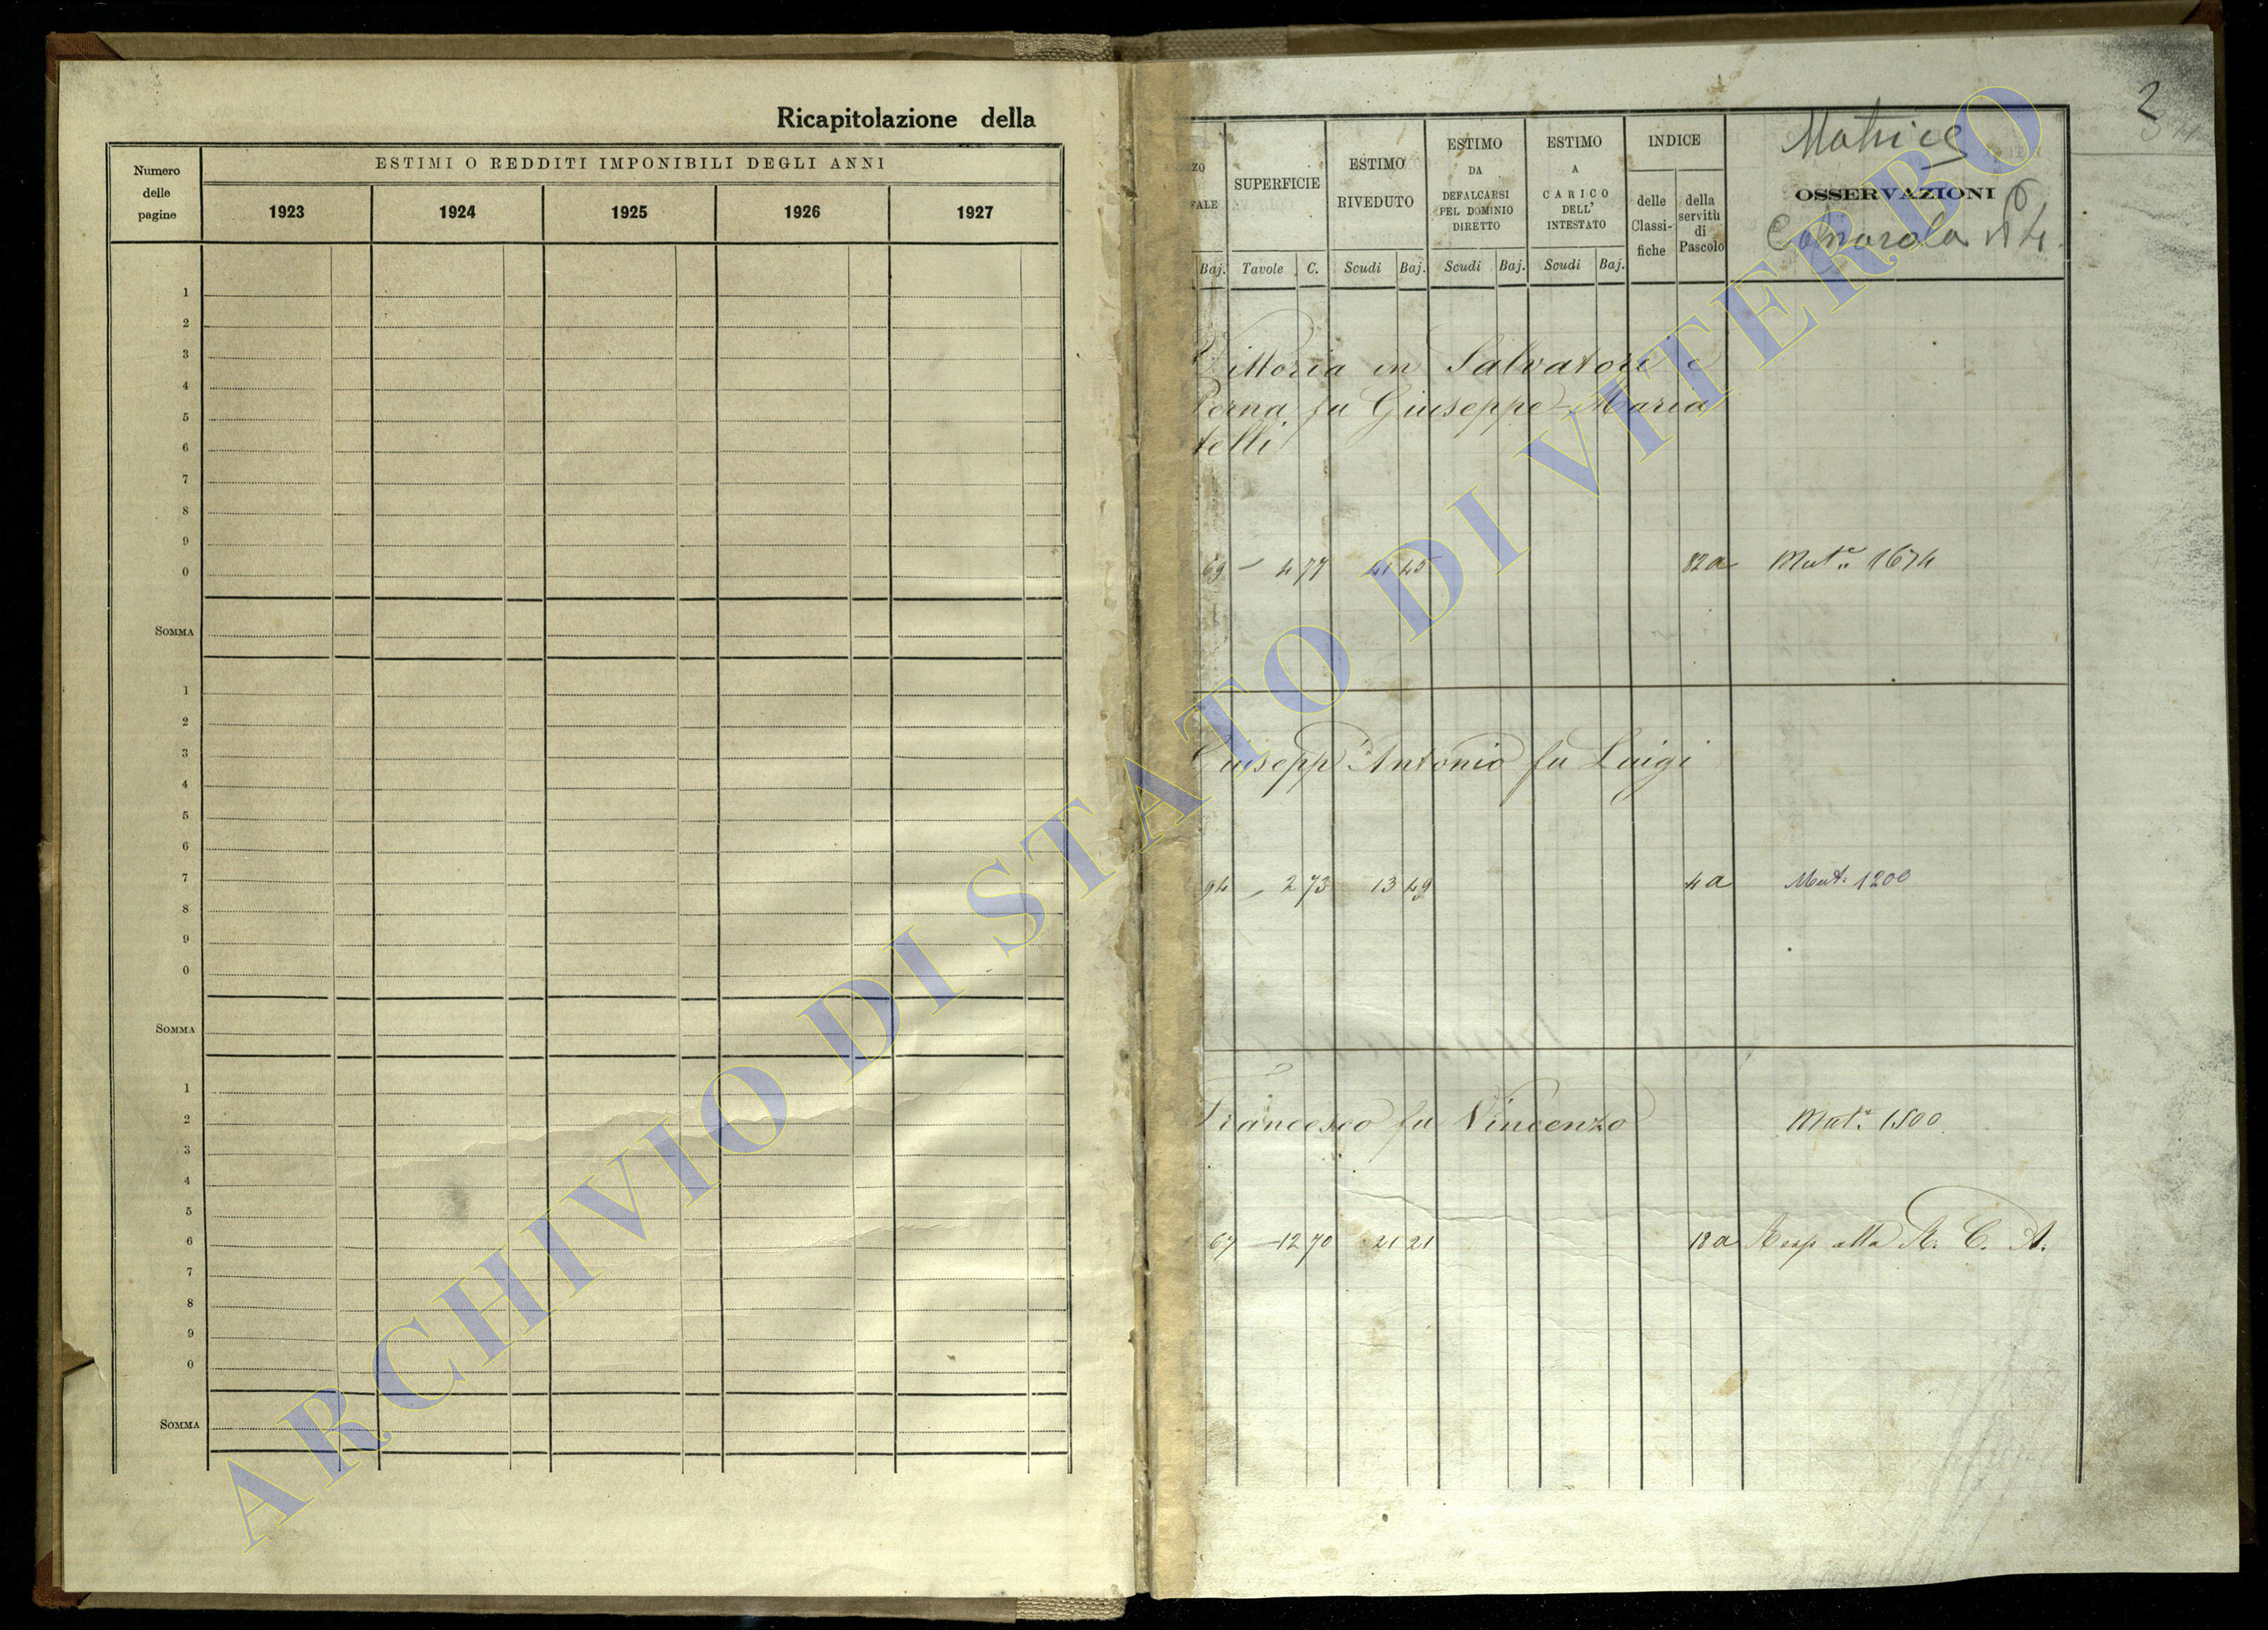 Ricapitolazione della
Numero
delle
pagine
ESTIMI O REDDITI IMPONIBILI DEGLI ANNI
1923 1924 1925 1926 1927
1
2
3
4
5
6
7
8
9
0
SOMMA
1
2
3
4
5
6
7
8
9
0
SOMMA
1
2
3
4
5
6
7
8
9
0
SOMMA
3
Matrice
SUPERFICIE
ESTIMO
RIVEDUTO
ESTIMO
DA
DEFALCARSI
PEL DOMINIO
DIRETTO
ESTIMO
A
CARICO
DELL'
INTESTATO
INDICE
delle
Classi-
fiche
della
servitù
di
Pascolo
OSSERVAZIONI
Baj. Tavole C. Scudi Baj. Scudi Baj. Scudi Baj.
Vittoria in Salvatori e
Perna fu Giuseppe Maria
telli
69 4 77 21 45 82a Mut.e 1674
Giusepp'Antonio fu Luigi
94 2 73 13 49 4a Mut. 1200
Francesco fu Vincenzo Mut. 1500
67 12 70 21 21 18a Resp alla R. C. A.
ARCHIVIO DI STATO DI VITERBO